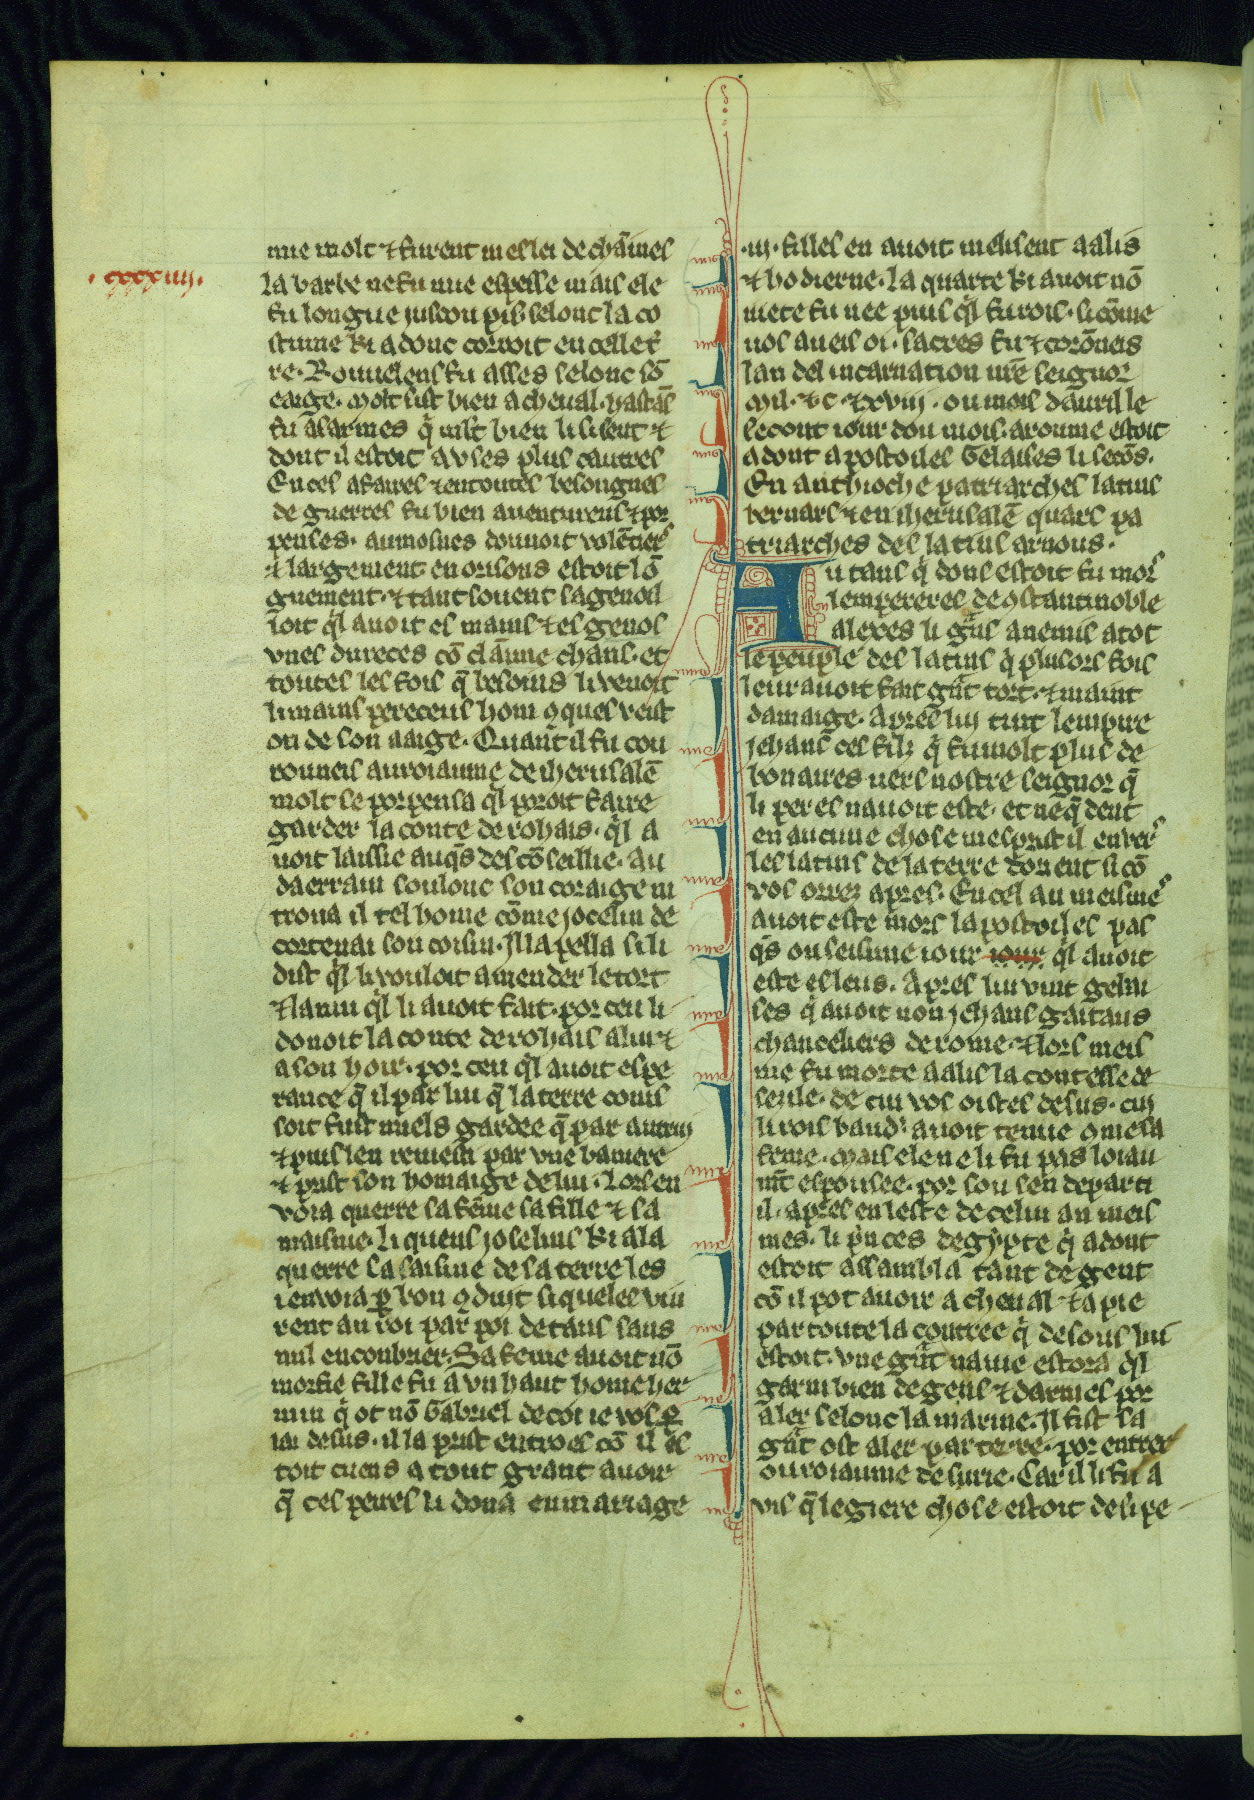 · cxxxiiij ·
nue molt ⁊ furent meslei de chãines
la barbe ne fu mie espesse mais ele
fu longue juscou pis selonc la co
stume ki adonc corroit en celle t̃
re. Bonuelens fu asses selonc sõ
eaige. molt sist bien a cheual. hastãs
fu as armes q̃ mlt bien li sisent ⁊
dont il estoit auses plus cautres
En ces afaires ⁊ en toutes besongnes
de guerres fu bien auentureus ⁊ por
penses. aumosnes donnoit volẽtiers
⁊ largement. en orisons estoit lõ
guement. ⁊ tant souent sagenoil
loit q̃l auoit es mains ⁊ es genos
vnes dureces cõ clãime chaus. et
toutes les fois q̃ besoins li venoit
li mains pereceus hom ꝯques veist
on de son aaige. Quant il fu cou
rouneis au roiaume de iherusalẽ
molt se porpensa q̃l poroit faire
garder la conte de rohais. q̃l a
uoit laissie auq̃s descõseillie. Au
daerrain soulonc son coraige ni
troua il tel home cõme jocelin de
cortenai son coisin. Il lapella si li
dist q̃l li vouloit amender le tort
⁊ lanui q̃l li auoit fait. por ceu li
donoit la conte de rohais a lui ⁊
a son hoir. por ceu q̃l auoit espe
rance q̃ il par lui q̃ la terre conis
soit fust miels gardee q̃ par autrui
⁊ puis len reuesti par vne baniere
⁊ prist son homaige de lui. Lors en
voia querre sa fẽme sa fille ⁊ sa
maisnie. li queus joselins ki ala
querre la saisine de sa terre les
i envoia ꝑ bon ꝯduit si que les vin
rent au roi par poi de tans sans
nul enconbrier. Sa feme auoit nõ
morfie fille fu a vn haut home her
min q̃ ot nõ Gabriel de coi ie vos ꝑ
lai desus. il la prist entroes cõ il es
toit cuens a tout grant auoir
q̃ ces peires li dona en mariage
.iij. filles en auoit melisent aalis
⁊ hodierne. la quarte ki auoit nõ
iuete fu nee puis q̃l fu rois. si cõme
uos aueis oi. sacres fu ⁊ corõneis
lan del incarnation nr̃e seignor
Mil. ⁊ c. ⁊ xviij. ou mois dauril le
secont iour dou mois. a roume estoit
adont apostoiles Gelaises li secõs.
En anthioche patriarches latins
bernars ⁊ en iherusalẽ quars pa
triarches des latins arnous.
Au tans q̃ dons estoit fu mors
lempereres de ꝯstantinoble
alexes li g̃ns anemis a tot
le peuple des latins q̃ plusors fois
leur auoit fait g̃nt tort. ⁊ maint
damaige. Apres lui tint lempire
jehans ces filz q̃ fu molt plus de
bonaires uers nostre seignor q̃
li peres nauoit este. et neq̃dent
en aucune chose mesprist il envers
les latins de la terre dorient si cõ
vos orrez apres. En cel an meisme
auoit este mors lapostoiles pas
q̃s ou seisime iour iour q̃l auoit
este esleus. Apres lui vint gelai
ses q̃ auoit non jehans gaitans
chanceliers de rome. ⁊ lors meis
me fu morte aalis la contesse de
sezile. de cui vos oistes desus. cui
li rois baud' auoit tenue ꝯme sa
feme. mais ele ne li fu pas loiau
mt̃ espousee. por sou sen departi
il. apres en leste de celui an meis
mes. li p̃nces degypte q̃ adont
estoit assambla tant de gent
cõ il pot auoir a cheual ⁊ a pie
par toute la contree q̃ desous lui
estoit. vne g̃nt nauie estora q̃l
garni bien de gens ⁊ darmes por
aler selonc la marine. Il fist sa
g̃nt ost aler par terre. por entrer
ou roiaume de surie. Car il li fu a
vis q̃ legiere chose estoit de si pe